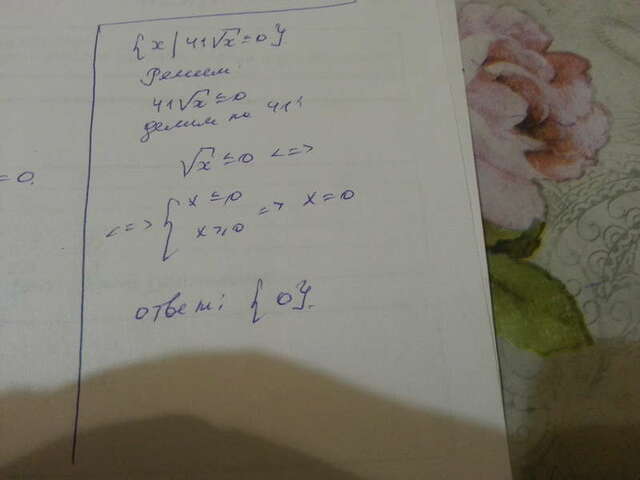 {x | 41√x ≤ 0}
Решем:
41√x ≤ 0
делим на 41:
√x ≤ 0 <=>
= 0.
<=> { x ≤ 0
x ≥ 0 => x = 0
ответ: {0}.